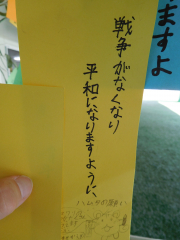 戦争がなくなり
平和になりますように、
ますよ